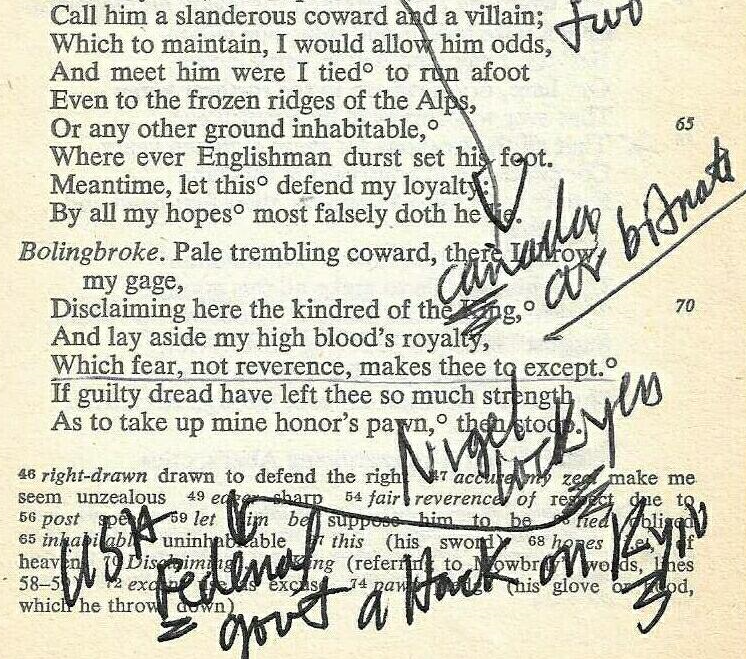 Call him a slanderous coward and a villain;
Which to maintain, I would allow him odds,
two
And meet him were I tied° to run afoot
Even to the frozen ridges of the Alps,
Or any other ground inhabitable,° 65
Where ever Englishman durst set his foot.
Meantime, let this° defend my loyalty:
By all my hopes° most falsely doth he lie.
canada
Bolingbroke. Pale trembling coward, there I throw
my gage,
Disclaiming here the kindred of the King,° 70
And lay aside my high blood's royalty,
Which fear, not reverence, makes thee to except.°
If guilty dread have left thee so much strength
As to take up mine honor's pawn,° then stoop.
Nigel
Lockyer
46 right-drawn drawn to defend the right 47 accuse my zeal make me
seem unzealous 49 eager sharp 54 fair reverence of respect due to
56 post speed 59 let him be suppose him to be 63 tied obliged
65 inhabitable uninhabitable 67 this (his sword) 68 hopes of
heaven 70 Disclaiming King (referring to Mowbray's words, lines
58-59 72 except excuse 74 pawn (his glove or hood,
which he throws down)
USA
Federal
govt attack on Kyiv